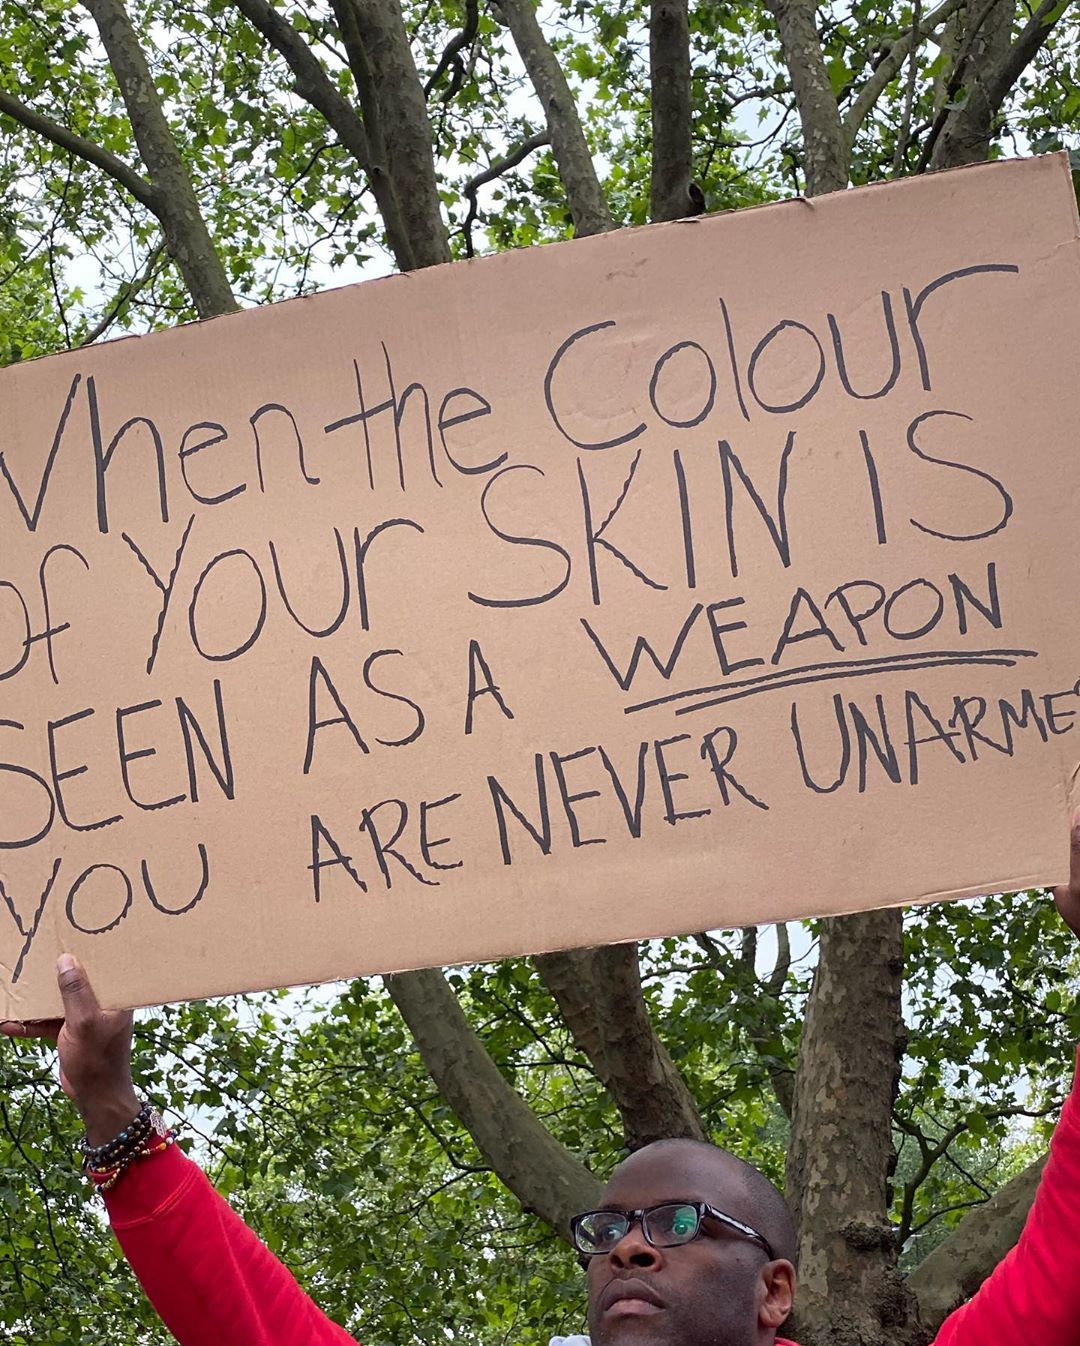 When the Colour
of Your SKIN IS
SEEN AS A WEAPON
YOU ARE NEVER UNARMED